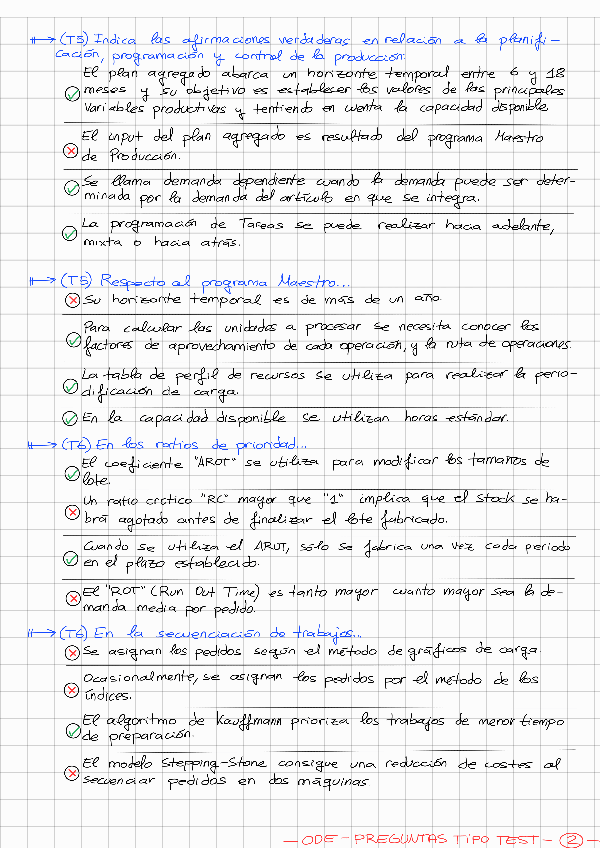 (T5) Indica las afirmaciones verdaderas en relación a la planifi-
cación, programación y control de la producción:
El plan agregado abarca un horizonte temporal entre 6 y 18
meses y su objetivo es establecer los valores de las principales
variables productivas y teniendo en cuenta la capacidad disponible
El input del plan agregado es resultado del programa Maestro
de Producción.
Se llama demanda dependiente cuando la demanda puede ser deter-
minada por la demanda del artículo en que se integra.
La programación de Tareas se puede realizar hacia adelante,
mixta o hacia atrás.
(T5) Respecto al programa Maestro...
Su horizonte temporal es de más de un año.
Para calcular las unidades a procesar se necesita conocer los
factores de aprovechamiento de cada operación, y la ruta de operaciones.
La tabla de perfil de recursos se utiliza para realizar la perio-
dificación de carga.
En la capacidad disponible se utilizan horas estándar.
(T6) En los ratios de prioridad...
El coeficiente "AROT" se utiliza para modificar los tamaños de
lote.
Un ratio crótico "RC" mayor que "1" implica que el stock se ha-
brá agotado antes de finalizar el lote fabricado.
Cuando se utiliza el AROT, sólo se fabrica una vez cada periodo
en el plazo establecido.
El "ROT" (Run Out Time) es tanto mayor cuanto mayor sea la de-
manda media por pedido.
(T6) En la secuenciación de trabajos...
Se asignan los pedidos según el método de gráficos de carga.
Ocasionalmente, se asignan los pedidos por el método de los
índices.
El algoritmo de Kauffmann prioriza los trabajos de menor tiempo
de preparación.
El modelo Stepping-Stone consigue una reducción de costes al
secuenciar pedidos en dos máquinas.
- ODE - PREGUNTAS TIPO TEST - 2 -